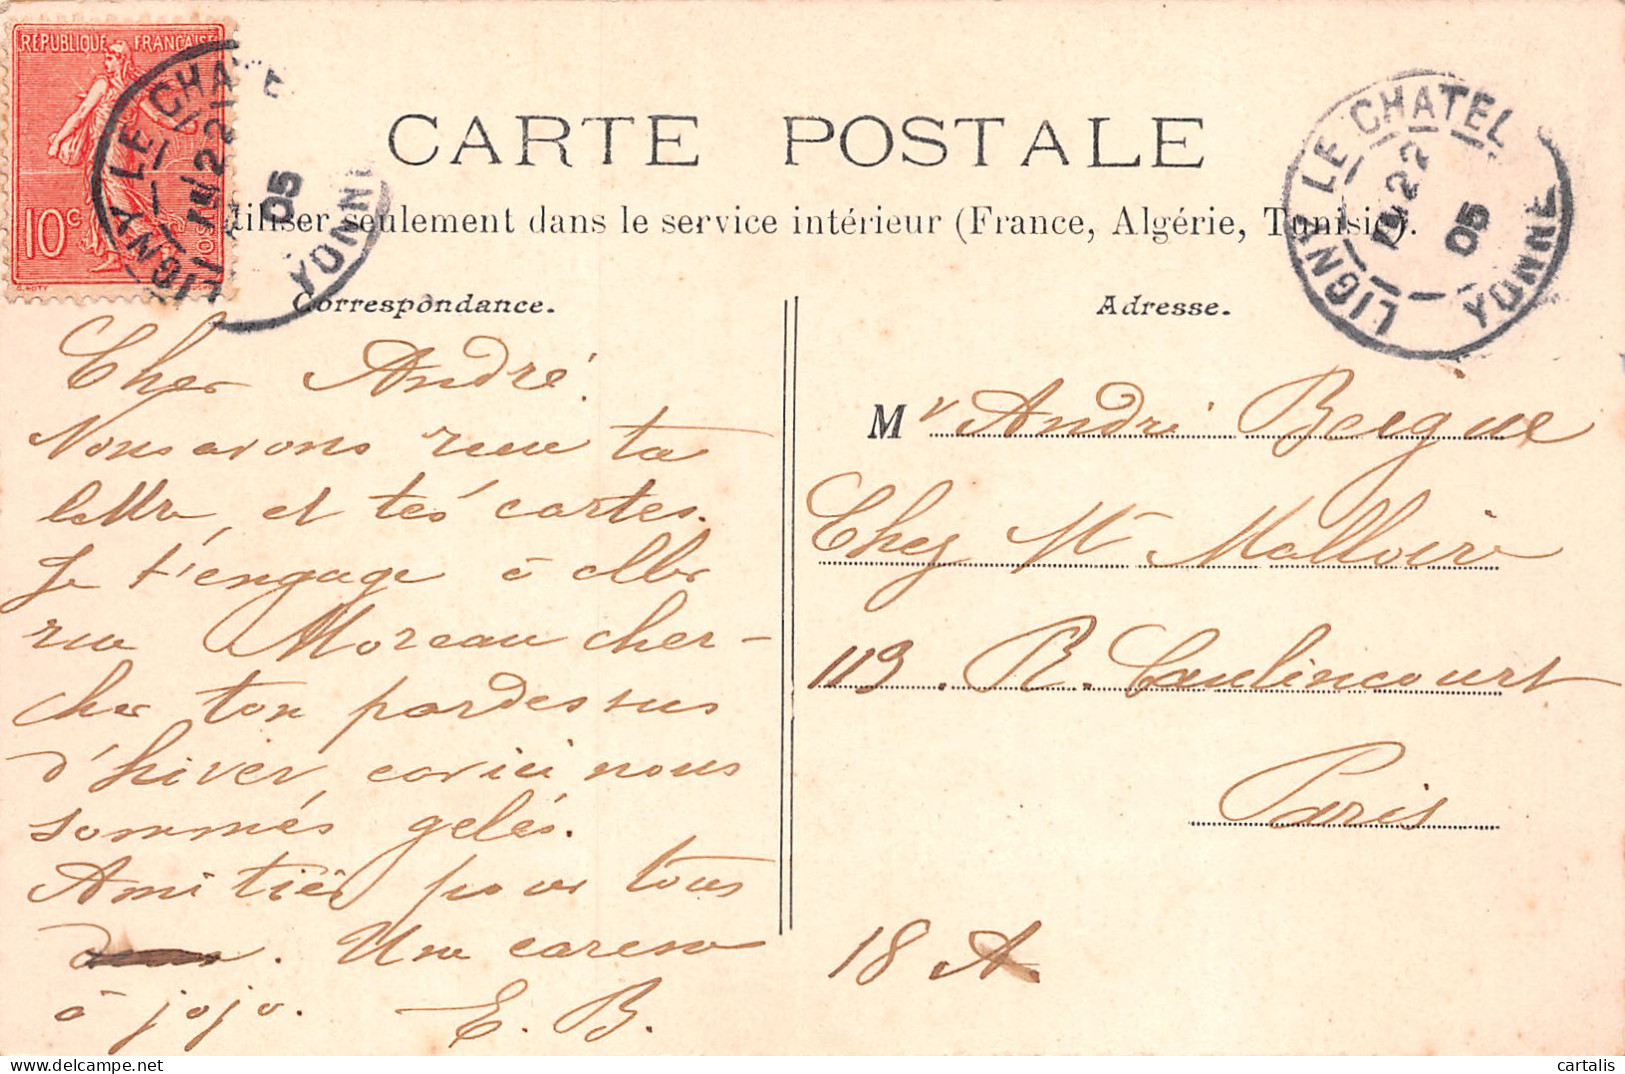 REPUBLIQUE FRANÇAISE
10c POSTES
LIGNY LE CHATEL
22
05
YONNE
CARTE POSTALE
utiliser seulement dans le service intérieur (France, Algérie, Tunisie).
LIGNY LE CHATEL
22
05
YONNE
Correspondance.
Adresse.
Cher André.
Nous avons reçu ta
lettre, et tes cartes.
Je t'engage à aller
rue Moreau cher-
cher ton pardessus
d'hiver, car ici nous
sommés gelés.
Amitiés pour tous
. Une caresse
à jojo. E. B.
Mr André Bergue
Chez Mr Malloire
113. R. Caulincourt
Paris
18 A.
cartalis